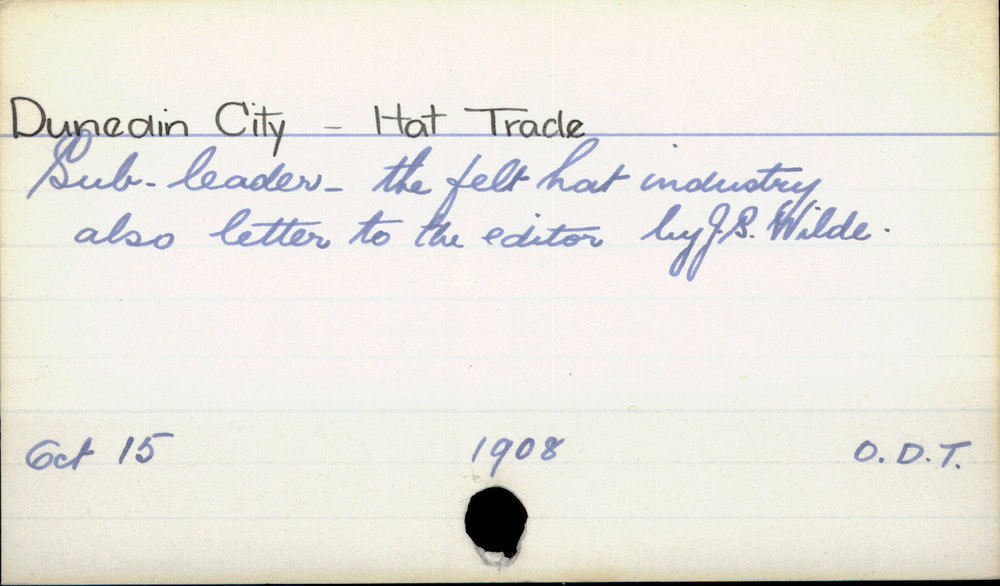 Dunedin City - Hat Trade
Sub-leader- the felt hat industry
also letter to the editor by J.S. Wilde.
Oct 15 1908 O.D.T.